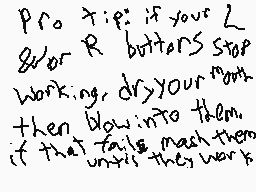 Pro tip: if your L
&/or R buttons stop
working, dry your mouth
then blow into them.
if that fails mash them
until they work